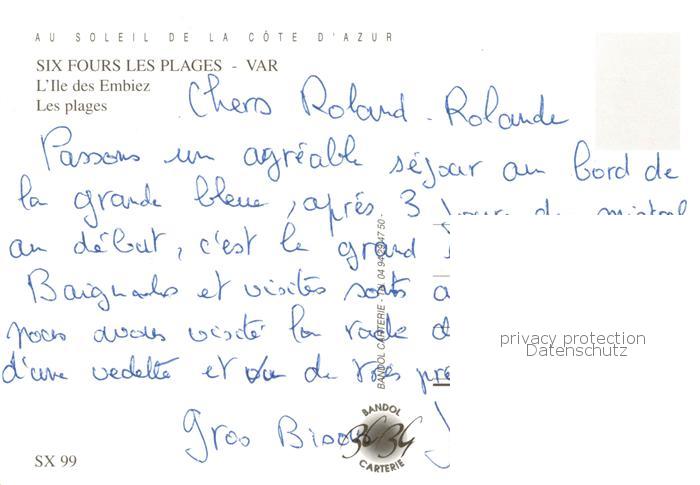 AU SOLEIL DE LA CÔTE D'AZUR
SIX FOURS LES PLAGES - VAR
L'Ile des Embiez
Les plages
Chers Roland - Rolande
Passons un agréable séjour au bord de
la grande bleue, après 3 jours de mistral
au début, c'est le grand
Baignades et visites sont a
nous avons visité la rade d
d'une vedette et vu de très pré
Gros Bisous
BANDOL CARTERIE - Tél. 04 94 29 47 50 -
BANDOL
CARTERIE
SX 99
privacy protection
Datenschutz